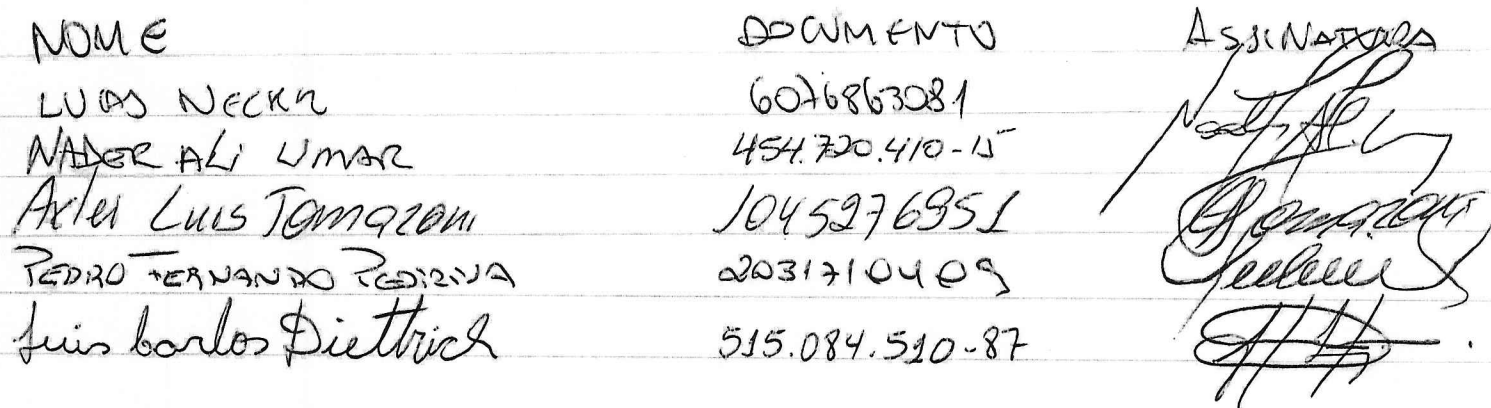 NOME DOCUMENTO ASSINATURA
LUCAS NECKR 6076863081
NADER ALI UMAR 454.720.410-15
Arlei Luis Tomazoni 1045276951 Tomazoni
PEDRO FERNANDO 2031710409
Luis Carlos Diettrich 515.084.510-87